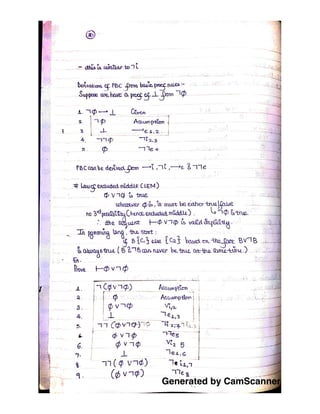 - this is similar to ¬i
Derivation of PBC from basic proof rules -
Suppose we have a proof of ⊥ from ¬φ
1. ¬φ → ⊥ Given
2. ¬φ Assumption
3. ⊥ →e 1,2
4. ¬¬φ ¬i 2,3
5. φ ¬¬e 4
PBC can be derived from →i, ¬i, →e & ¬¬e
* Law of excluded middle (LEM)
φ ∨ ¬φ is true
whatever φ is, it must be either true/false
no 3rd possibility (hence excluded middle). ¬φ is true.
∴ the sequent ⊢ φ ∨ ¬φ is valid
In programming lang, the stmt:
if B {C1} else {C2} based on the fact B∨¬B
is always true (B & ¬B can never be true at the same time.)
Ex.
Prove ⊢ φ ∨ ¬φ
1. ¬(φ ∨ ¬φ) Assumption
2. φ Assumption
3. φ ∨ ¬φ ∨i1 2
4. ⊥ ¬e 1,3
5. ¬φ
6. φ ∨ ¬φ ∨i2 5
7. ⊥ ¬e 1,6
8. ¬¬(φ ∨ ¬φ) ¬i 1,7
9. (φ ∨ ¬φ) ¬¬e 8
Generated by CamScanner